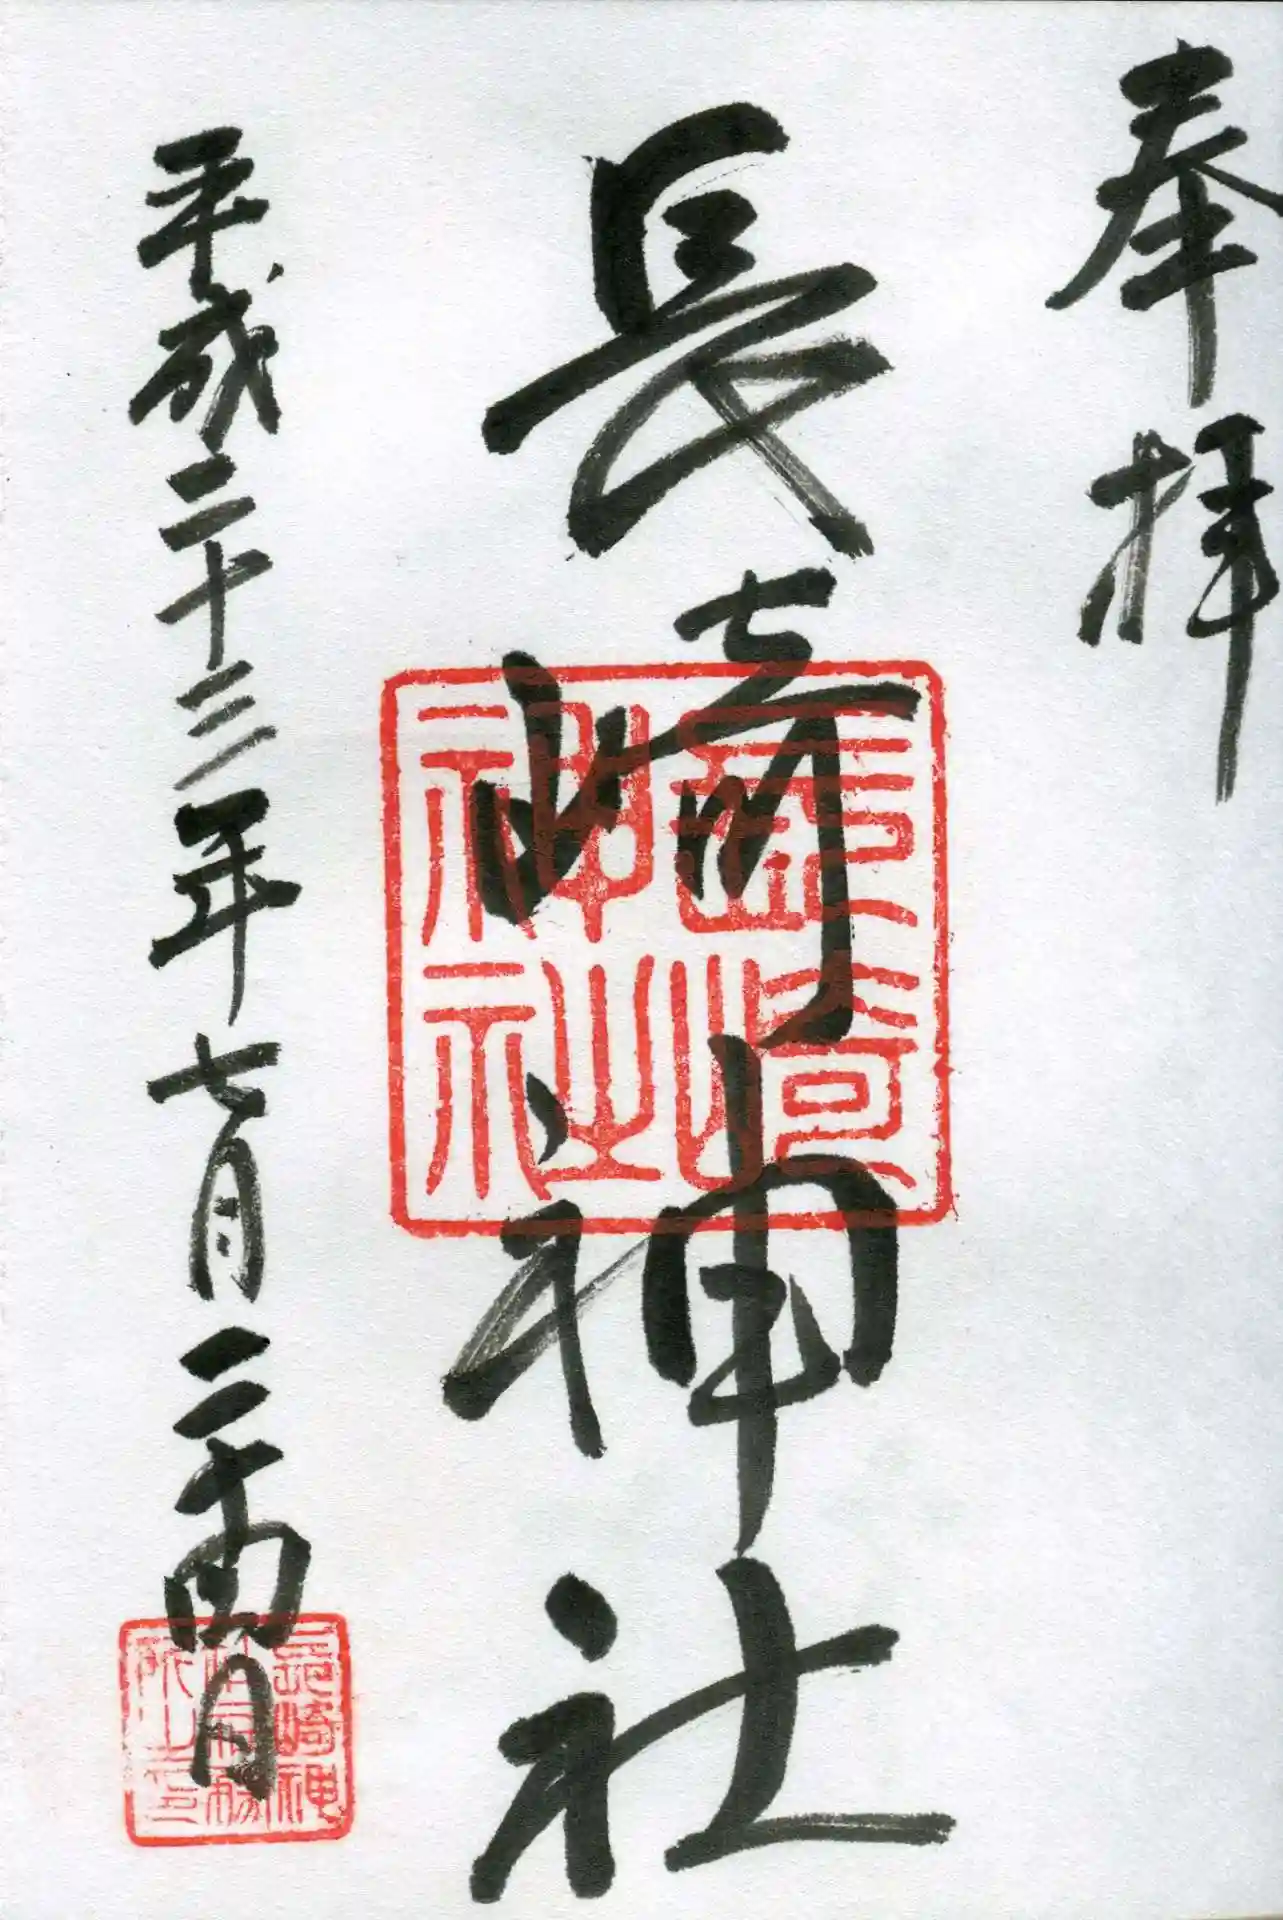 奉拝
長崎神社
長崎神社
平成二十三年七月二十四日
長崎神社社務所之印